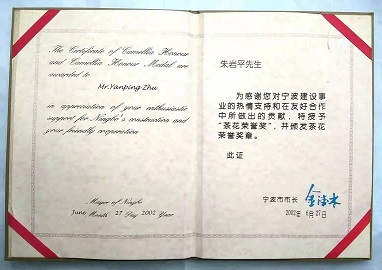 The Certificate of Camellia Honour
and Camellia Honour Medal are
awarded to
Mr.Yanping Zhu
in appreciation of your enthusiastic
support for Ningbo's construction and
your friendly cooperation
Mayor of Ningbo
June Month 27 Day 2002 Year
朱岩平先生
为感谢您对宁波建设事
业的热情支持和在友好合作
中所做出的贡献，特授予
“茶花荣誉奖”，并颁发茶花
荣誉奖章。
此证
宁波市市长
2002年 6月 27日